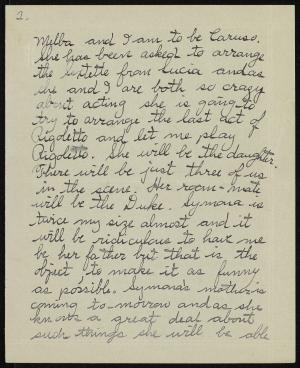 2.
Melba and I am to be Caruso.
She has been asked to arrange
the sextette from Lucia and as
she and I are both so crazy
about acting she is going to
try to arrange the last act of
Rigoletto and let me play
Rigoletto. She will be the daughter.
There will be just three of us
in the scene. Her room-mate
will be the Duke. Symona is
twice my size almost and it
will be ridiculous to have me
be her father but that is the
object to make it as funny
as possible. Symona's mother is
coming to-morrow and as she
knows a great deal about
such things she will be able